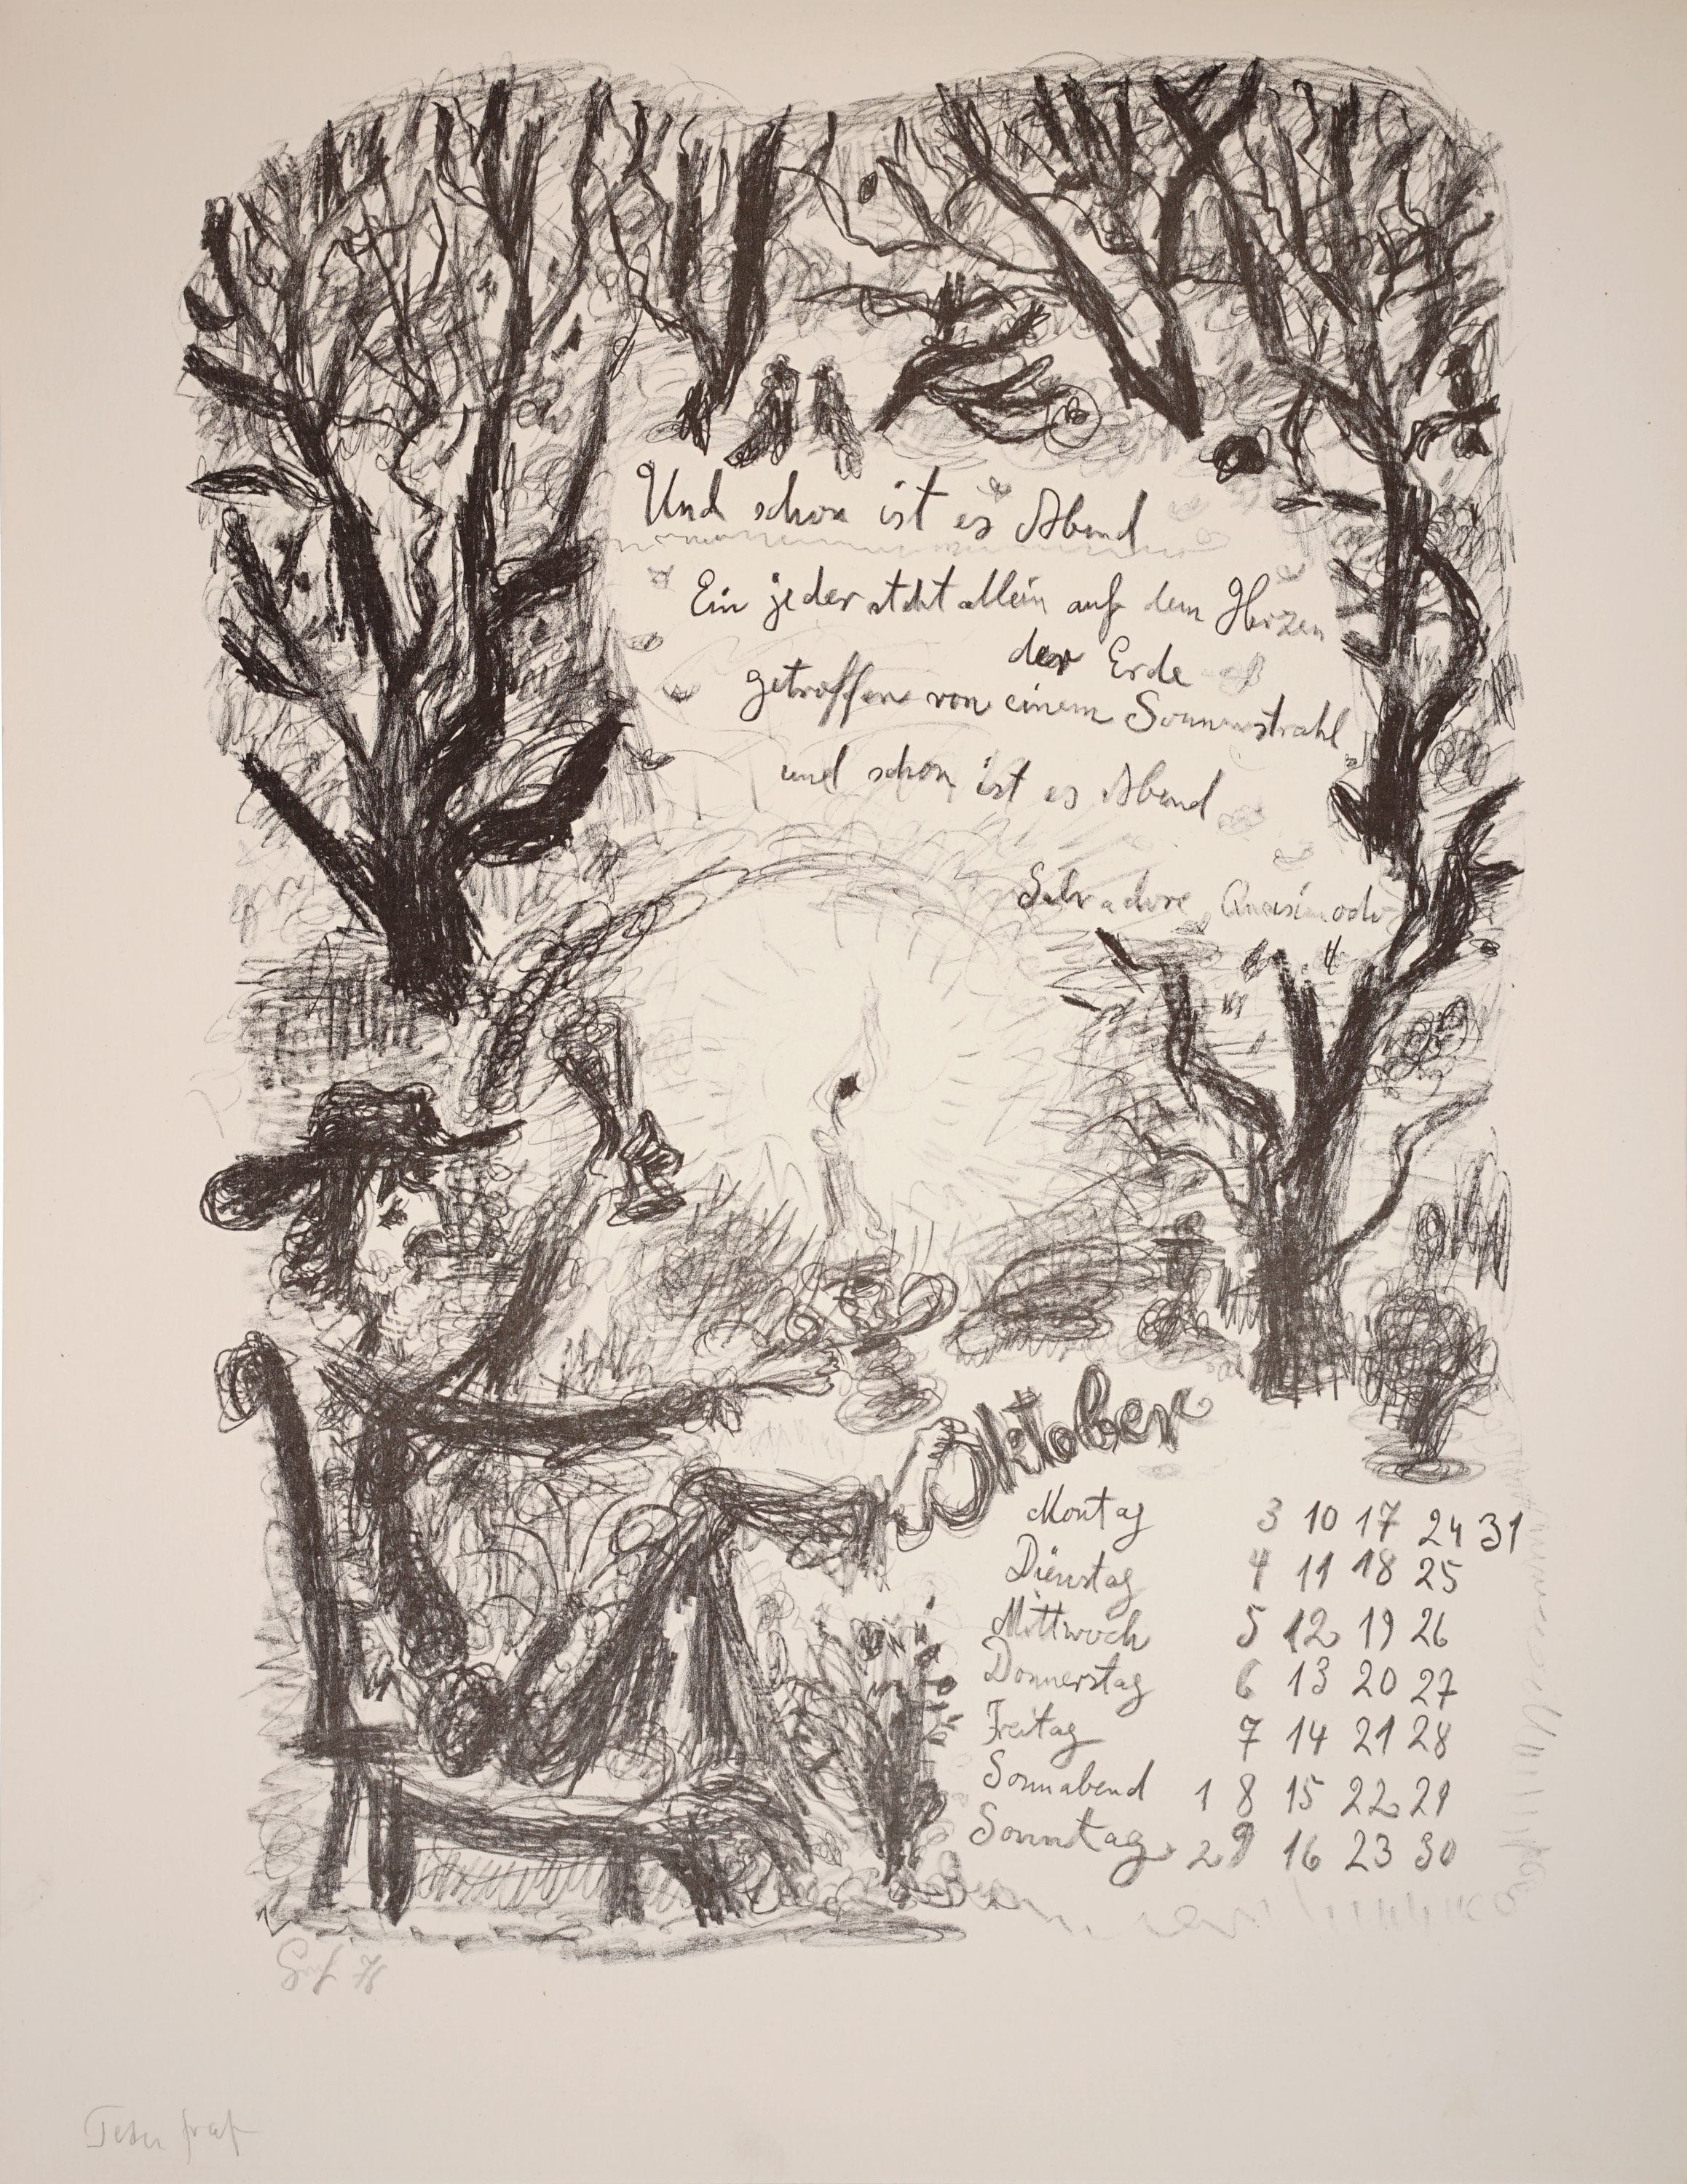 Und schon ist es Abend
Ein jeder steht allein auf dem Herzen
der Erde
getroffen von einem Sonnenstrahl
und schon ist es Abend
Salvadore Quasimodo
Oktober
Montag 3 10 17 24 31
Dienstag 4 11 18 25
Mittwoch 5 12 19 26
Donnerstag 6 13 20 27
Freitag 7 14 21 28
Sonnabend 1 8 15 22 29
Sonntag 2 9 16 23 30
Peter Graf